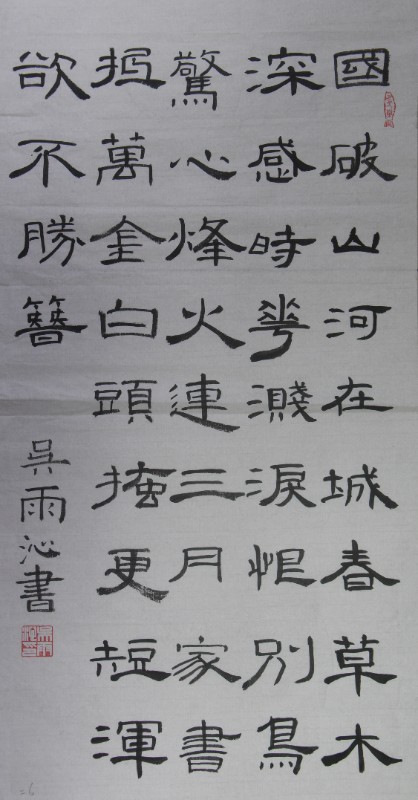 國破山河在城春草木
深感時花濺淚恨別鳥
驚心烽火連三月家書
抵萬金白頭搔更短渾
欲不勝簪
吳雨沁書